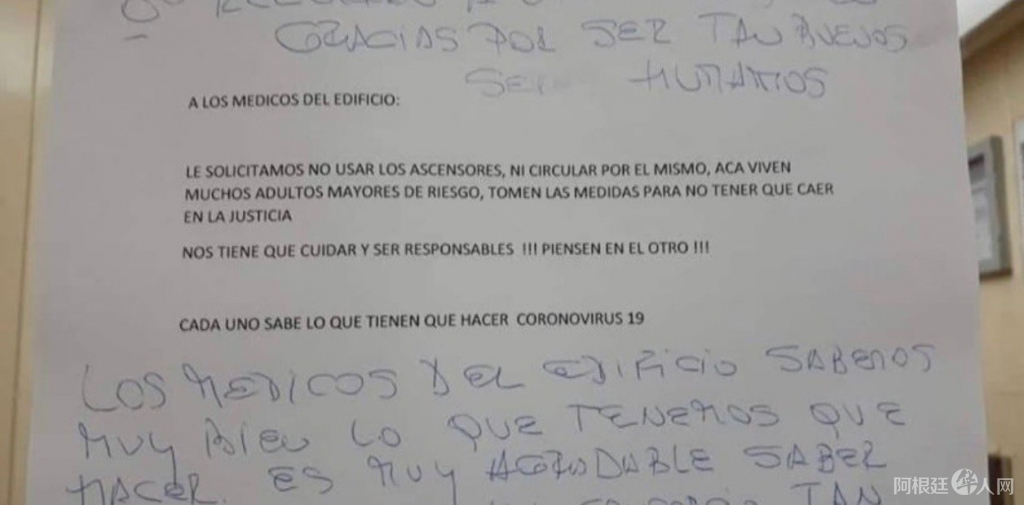 GRACIAS POR SER TAN BUENOS
SE HUMANOS
A LOS MEDICOS DEL EDIFICIO:
LE SOLICITAMOS NO USAR LOS ASCENSORES, NI CIRCULAR POR EL MISMO, ACA VIVEN
MUCHOS ADULTOS MAYORES DE RIESGO, TOMEN LAS MEDIDAS PARA NO TENER QUE CAER
EN LA JUSTICIA
NOS TIENE QUE CUIDAR Y SER RESPONSABLES !!! PIENSEN EN EL OTRO !!!
CADA UNO SABE LO QUE TIENEN QUE HACER CORONOVIRUS 19
LOS MEDICOS DEL EDIFICIO SABEMOS
MUY BIEN LO QUE TENEMOS QUE
HACER. ES MUY AGRADABLE SABER
TAN
阿根廷华人网